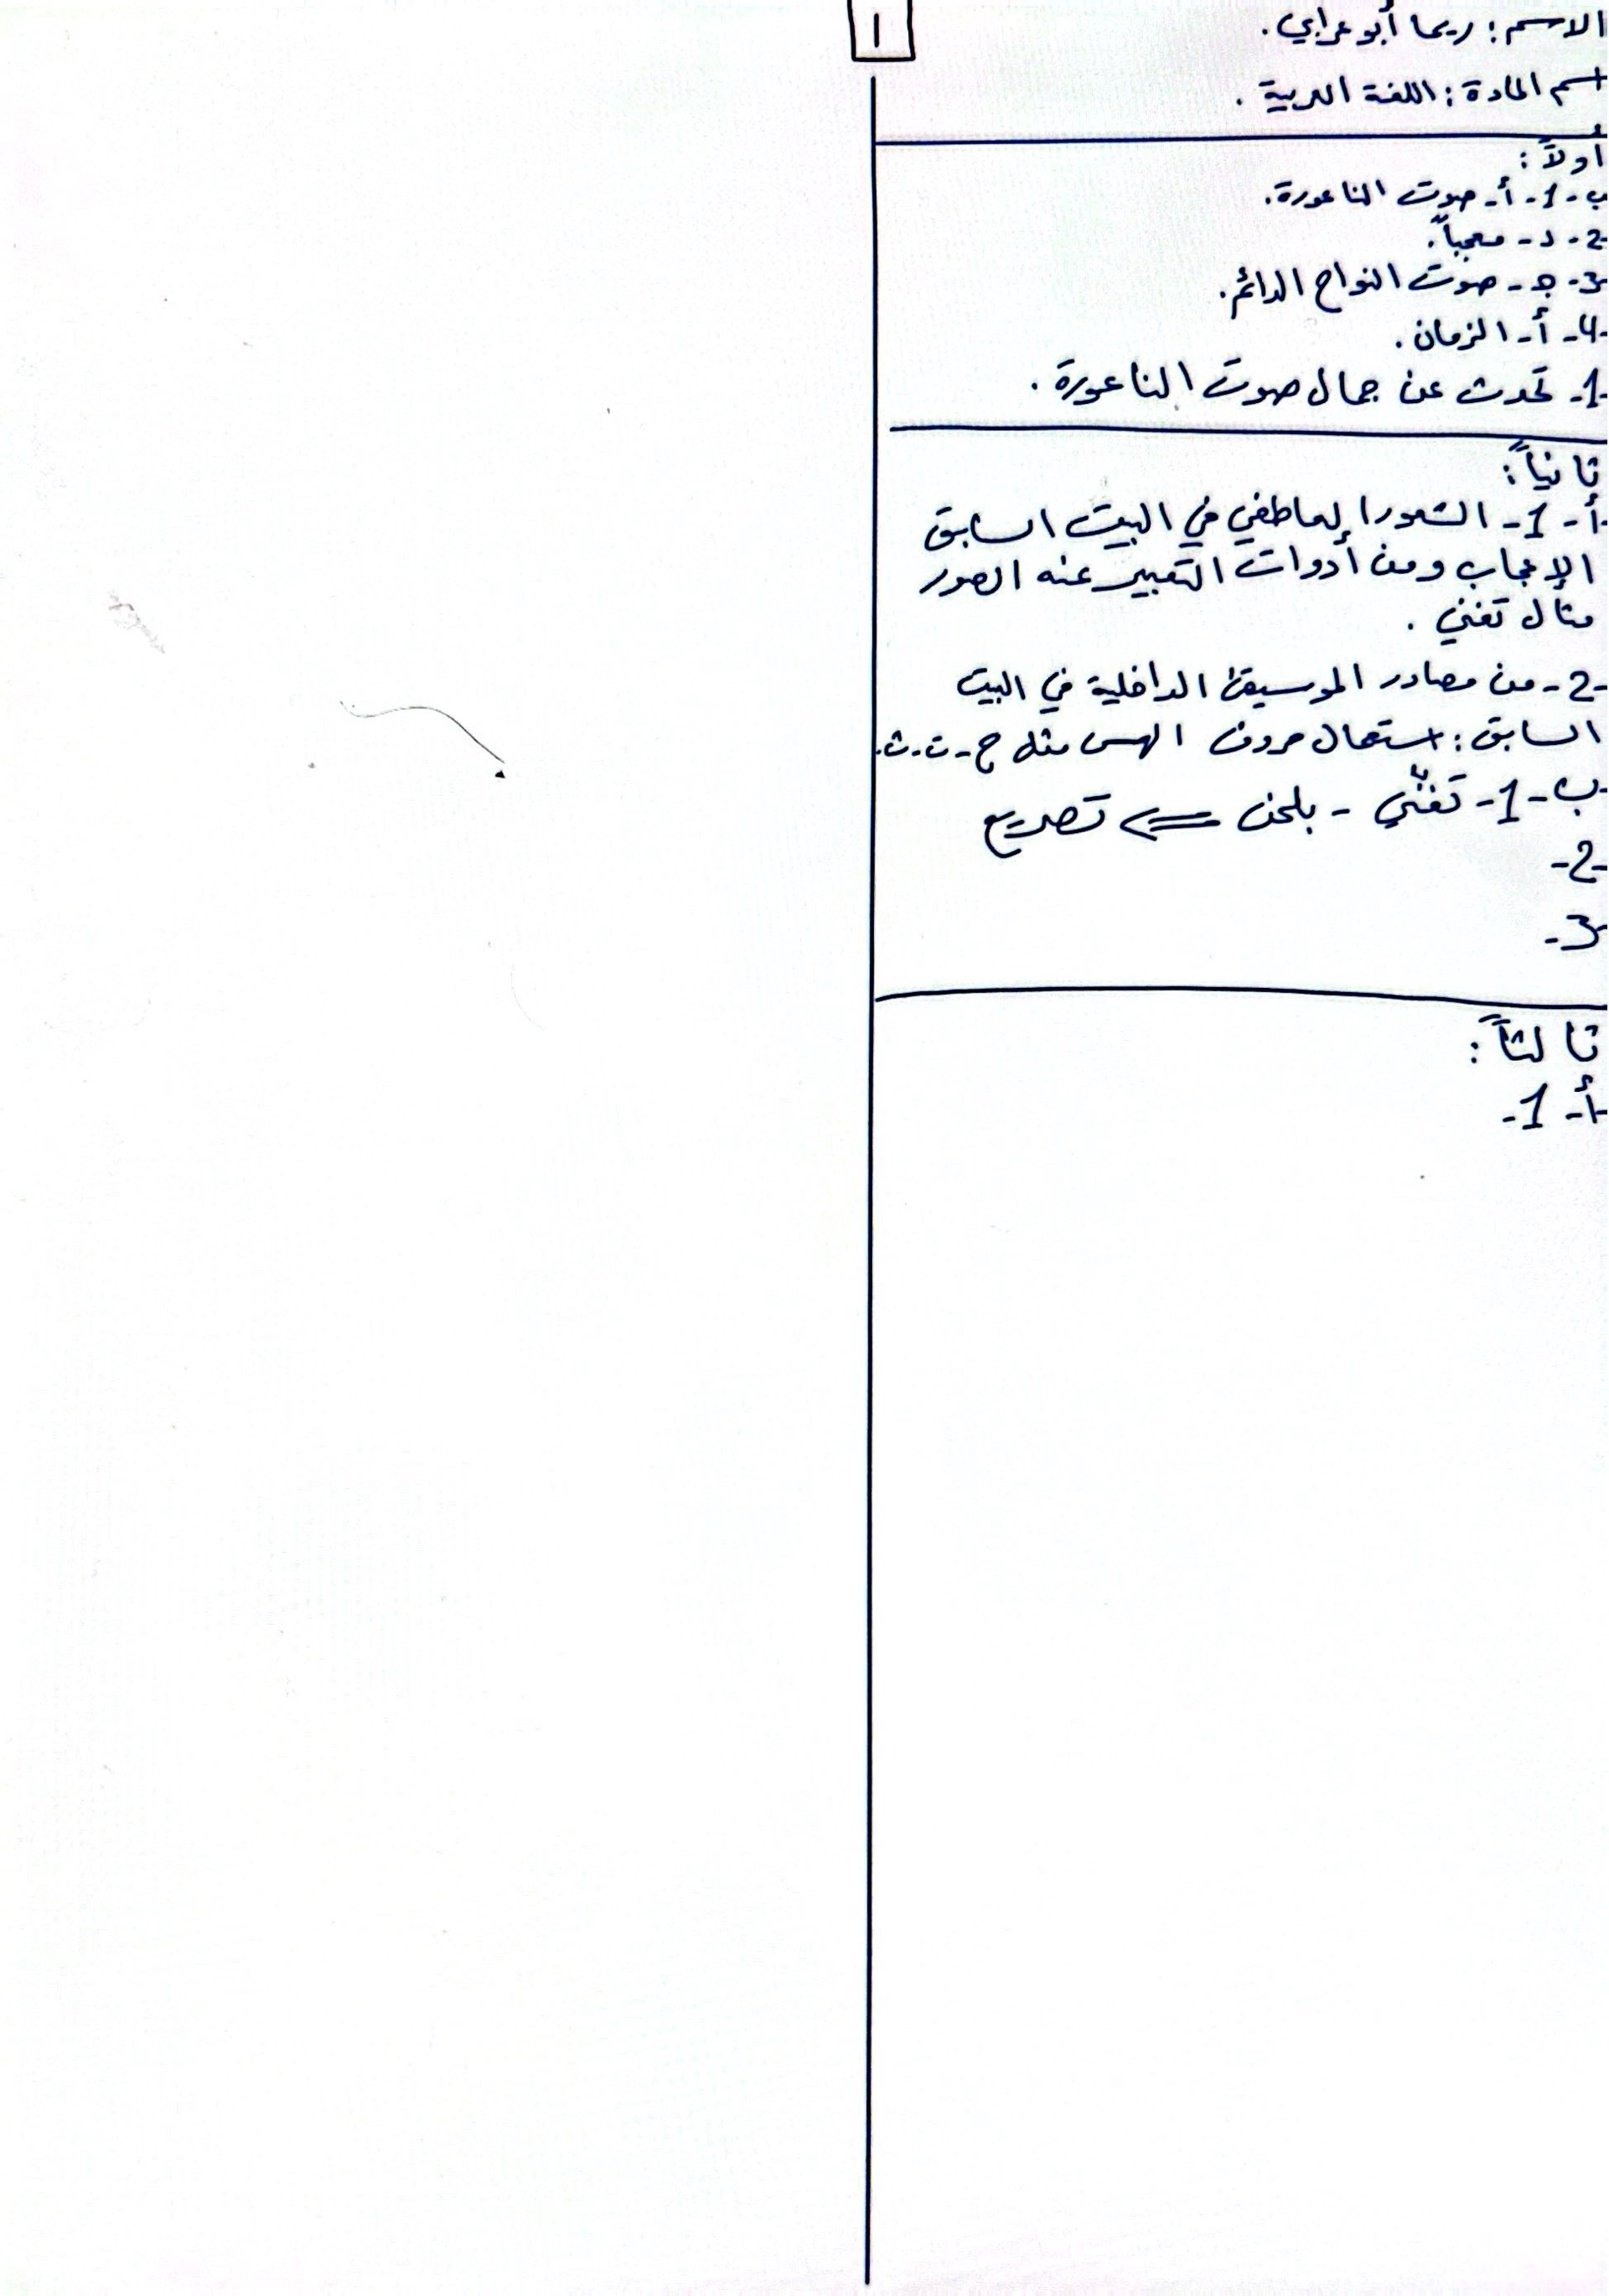 1
الاسم : ريما أبو عرابي .
اسم المادة : اللغة العربية .
أولاً :
ب - 1 - أ - صوت الناعورة .
2 - د - معجباً .
3 - ج - صوت النواح الدائم .
4 - أ - الزمان .
1 - تحدث عن جمال صوت الناعورة .
ثانياً :
أ - 1 - الشعور العاطفي في البيت السابق
الإعجاب ومن أدوات التعبير عنه الصور
مثال تغني .
2 - من مصادر الموسيقى الداخلية في البيت
السابق : استعمال حروف الهمس مثل ح - ت - ث .
ب - 1 - تغنّي - بلحن ⇐ تصريع
2 -
3 -
ثالثاً :
أ - 1 -